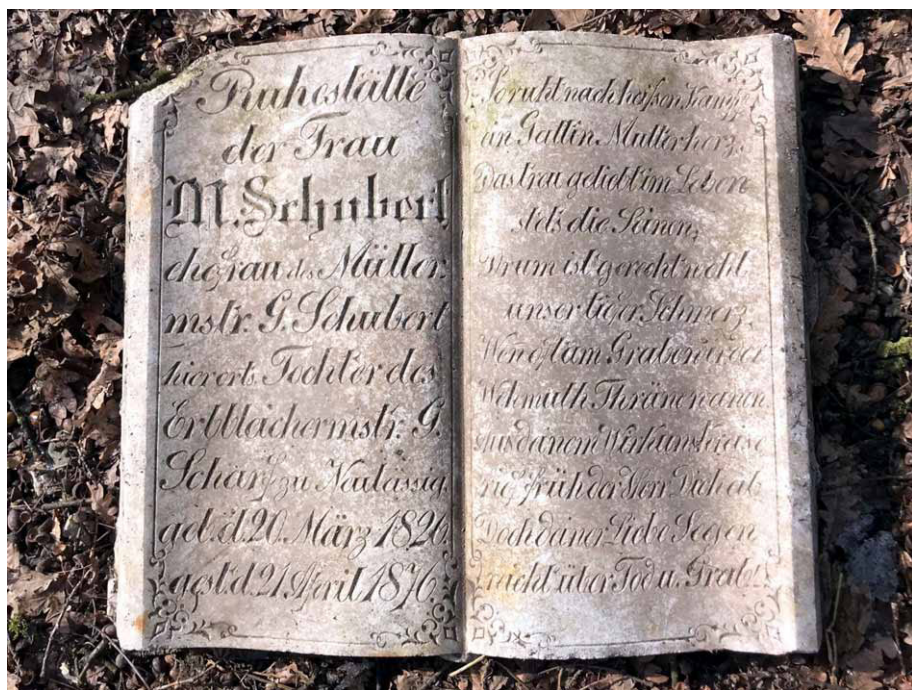 Ruhestätte
der Frau
M. Schubert
ehefrau des Müller
mstr. G. Schubert
hierorts. Tochter des
Erbbleichermstr. G.
Scharf zu Neulässig
geb. d. 20. März 1826.
gest. d. 21. April 1876.
So ruht nach heißen Kampf
Gattin Mutterherz,
Das treu geliebt im Leben
stets die Seinen,
Drum ist gerecht wohl
unser tiefer Schmerz,
am Grabe
Wehmuth Thränen
Aus deinem Wirkungskreise
rief früh der Herr Dich ab
Doch deiner Liebe Seegen
reicht über Tod u. Grab!